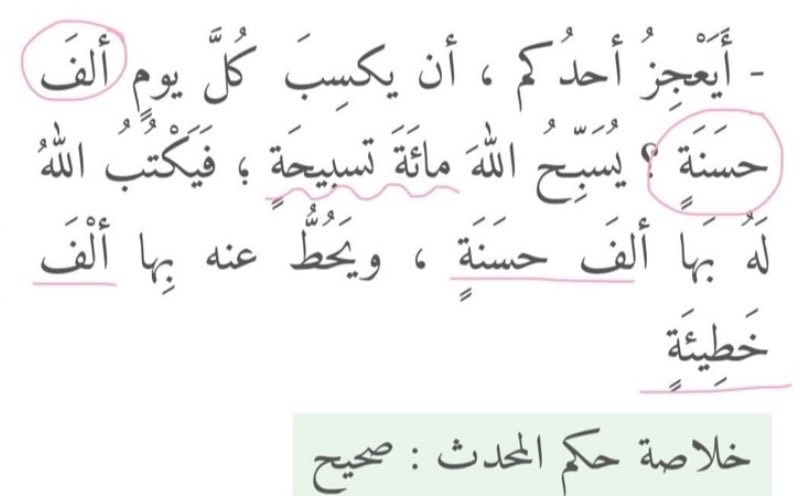 - أَيَعْجِزُ أحدُكم ، أن يكسِبَ كُلَّ يومٍ ألفَ
حسَنَةٍ ؟ يُسَبِّحُ اللهَ مائَةَ تسبيحَةٍ ؛ فَيَكْتُبُ اللهُ
لَهُ بَها ألفَ حسَنَةٍ ، ويَحُطُّ عنه بِها ألْفَ
خَطِيئَةٍ
خلاصة حكم المحدث : صحيح